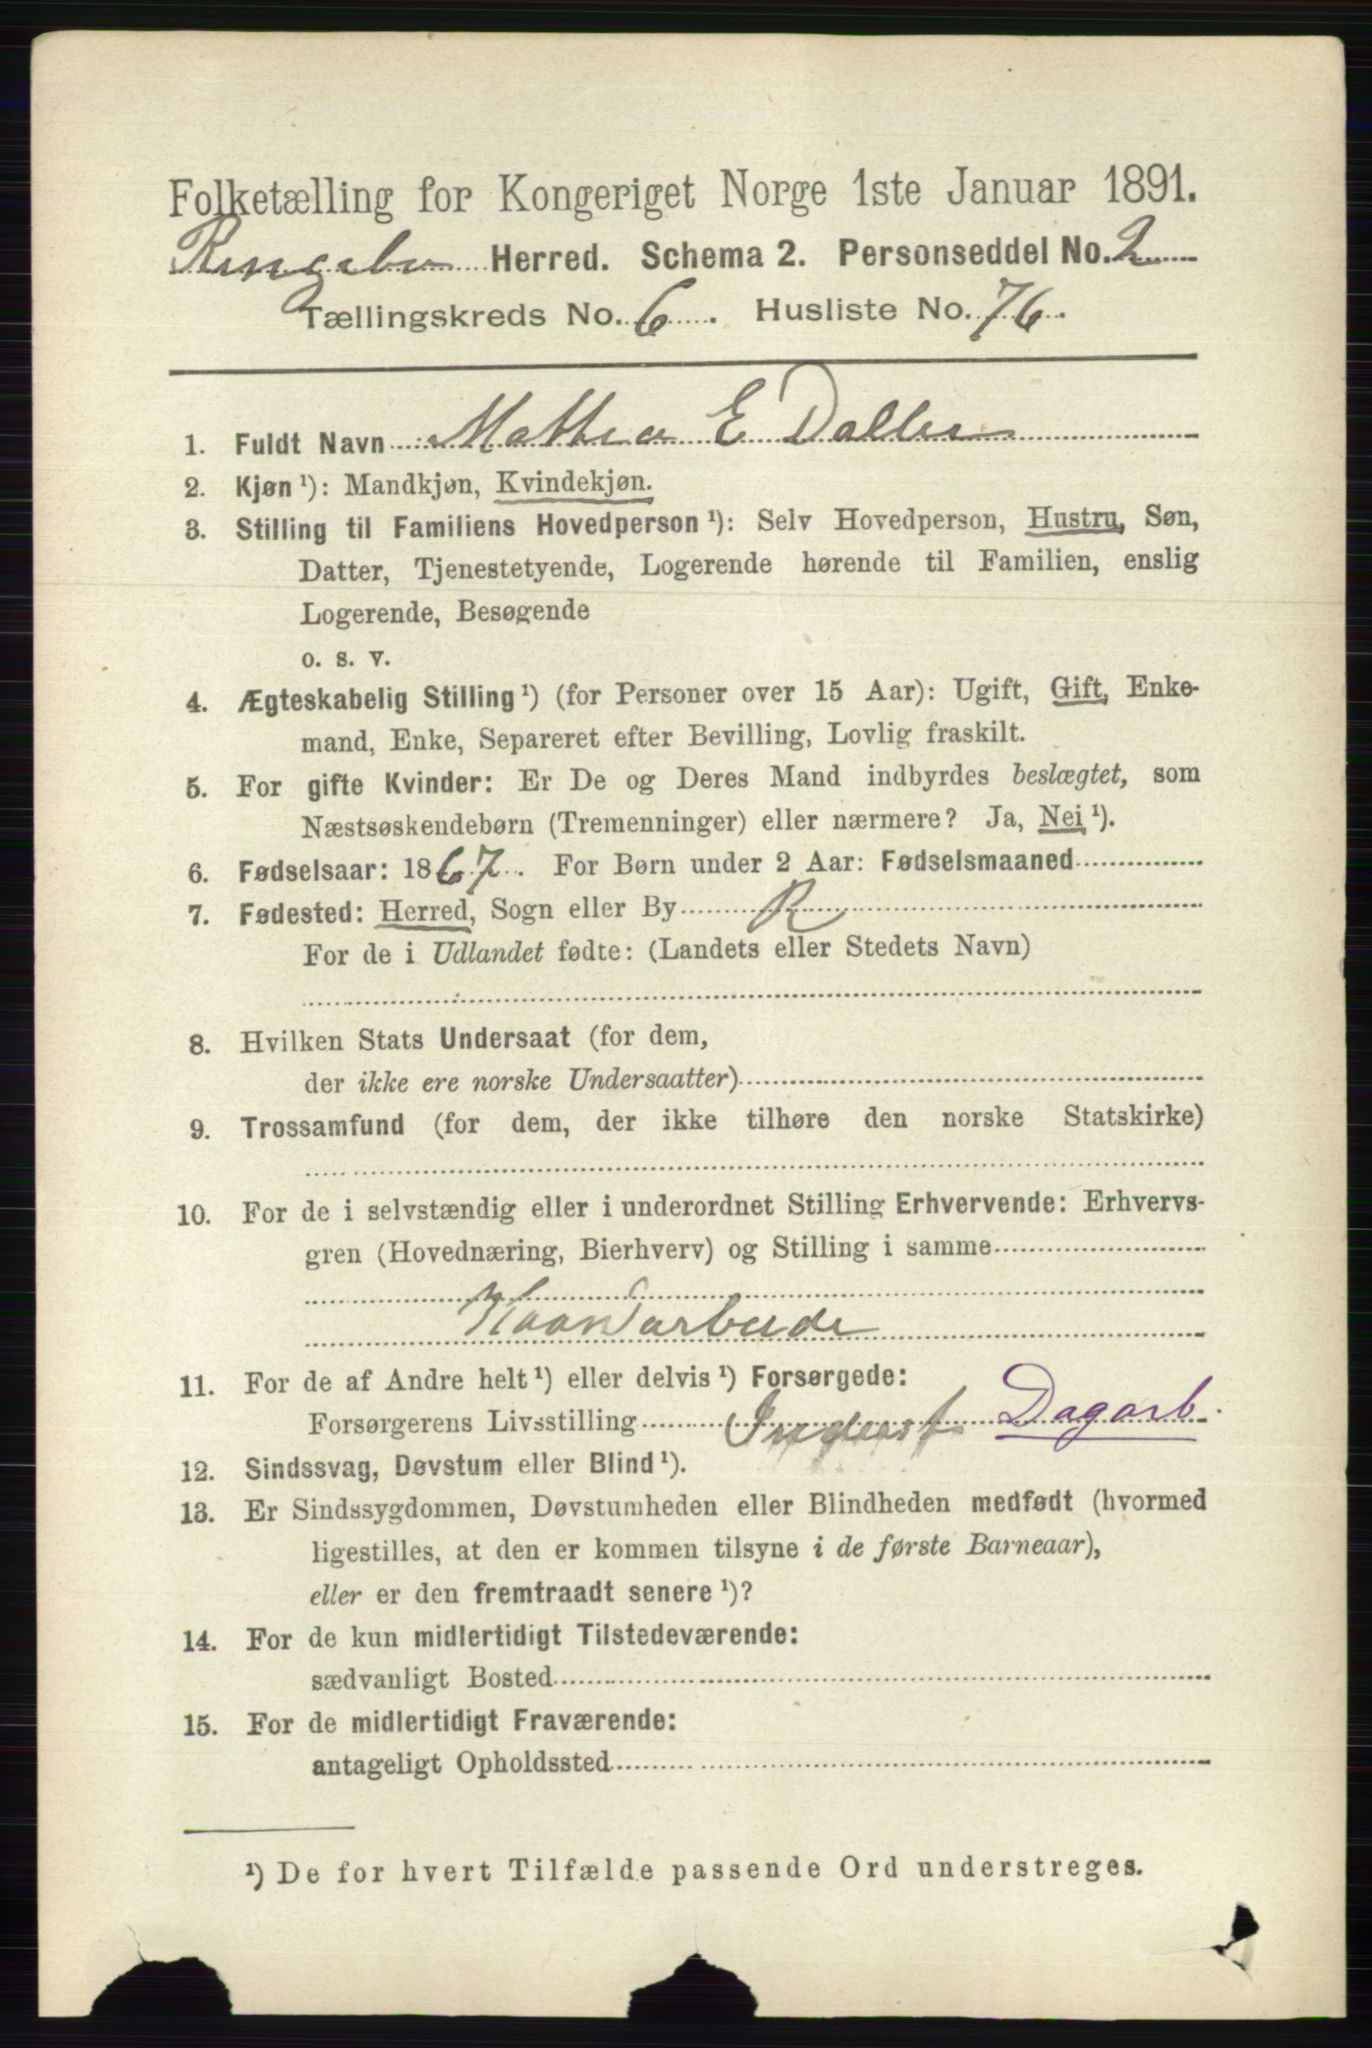 Folketælling for Kongeriget Norge 1ste Januar 1891.
Ringebu Herred. Schema 2. Personseddel No. 2
Tællingskreds No. 6. Husliste No. 76.
1. Fuldt Navn Mathea E
2. Kjøn ¹): Mandkjøn, Kvindekjøn.
3. Stilling til Familiens Hovedperson ¹): Selv Hovedperson, Hustru, Søn,
Datter, Tjenestetyende, Logerende hørende til Familien, enslig
Logerende, Besøgende
o. s. v.
4. Ægteskabelig Stilling ¹) (for Personer over 15 Aar): Ugift, Gift, Enke-
mand, Enke, Separeret efter Bevilling, Lovlig fraskilt.
5. For gifte Kvinder: Er De og Deres Mand indbyrdes beslægtet, som
Næstsøskendebørn (Tremenninger) eller nærmere? Ja, Nei ¹).
6. Fødselsaar: 1867. For Børn under 2 Aar: Fødselsmaaned
7. Fødested: Herred, Sogn eller By R
For de i Udlandet fødte: (Landets eller Stedets Navn)
8. Hvilken Stats Undersaat (for dem,
der ikke ere norske Undersaatter)
9. Trossamfund (for dem, der ikke tilhøre den norske Statskirke)
10. For de i selvstændig eller i underordnet Stilling Erhvervende: Erhvervs-
gren (Hovednæring, Bierhverv) og Stilling i samme
Haandarbeide
11. For de af Andre helt ¹) eller delvis ¹) Forsørgede:
Forsørgerens Livsstilling Inderst. Dagarb.
12. Sindssvag, Døvstum eller Blind ¹).
13. Er Sindssygdommen, Døvstumheden eller Blindheden medfødt (hvormed
ligestilles, at den er kommen tilsyne i de første Barneaar),
eller er den fremtraadt senere ¹)?
14. For de kun midlertidigt Tilstedeværende:
sædvanligt Bosted
15. For de midlertidigt Fraværende:
antageligt Opholdssted
¹) De for hvert Tilfælde passende Ord understreges.